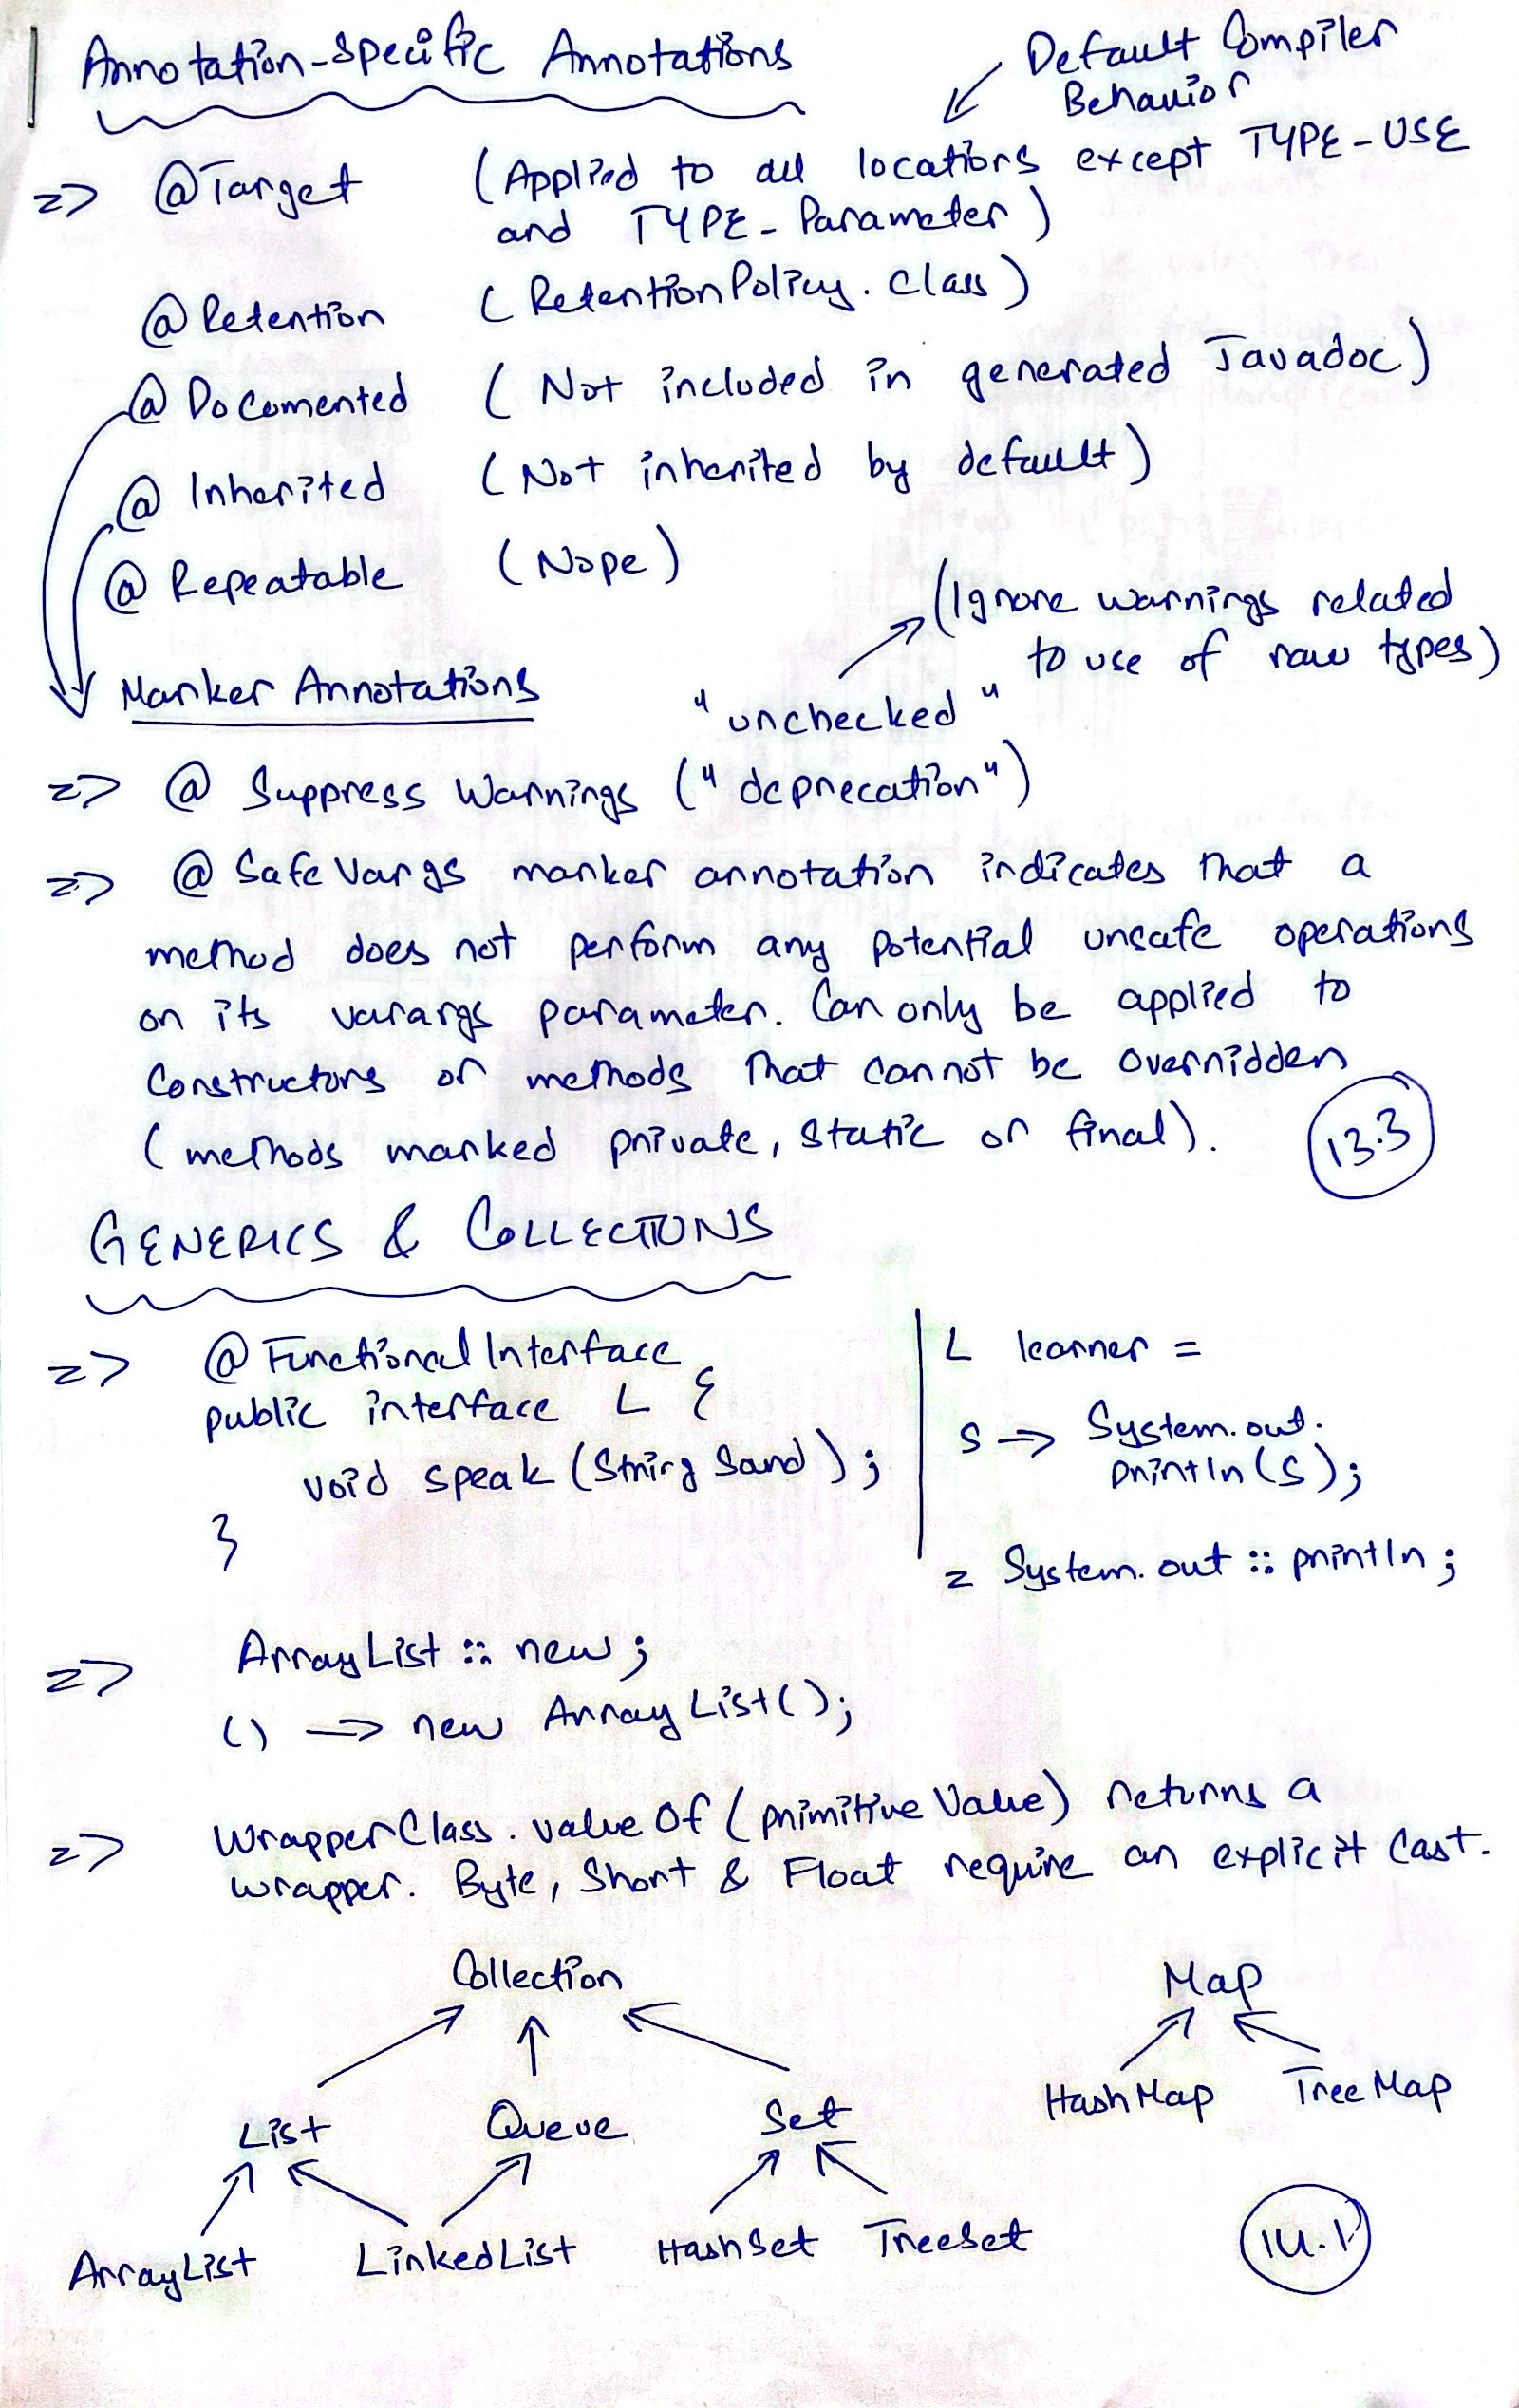 Annotation-Specific Annotations
Default Compiler
Behavior
=> @Target (Applied to all locations except TYPE-USE
and TYPE-Parameter)
@Retention (RetentionPolicy.Class)
@Documented (Not included in generated Javadoc)
@Inherited (Not inherited by default)
@Repeatable (Nope)
(Ignore warnings related
to use of raw types)
Marker Annotations
"unchecked"
=> @Suppress Warnings ("deprecation")
=> @Safe Vargs marker annotation indicates that a
method does not perform any potential unsafe operations
on its varargs parameter. Can only be applied to
Constructors or methods that cannot be overridden
(methods marked private, static or final).
13.3
GENERICS & COLLECTIONS
=> @FunctionalInterface
public interface L {
void speak (String Sand);
}
L learner =
s -> System.out.
println(s);
= System.out :: println;
=> ArrayList :: new;
() -> new ArrayList();
=> WrapperClass.valueOf (primitive Value) returns a
wrapper. Byte, Short & Float require an explicit cast.
Collection Map
HashMap TreeMap
List Queue Set
ArrayList LinkedList HashSet TreeSet
14.1